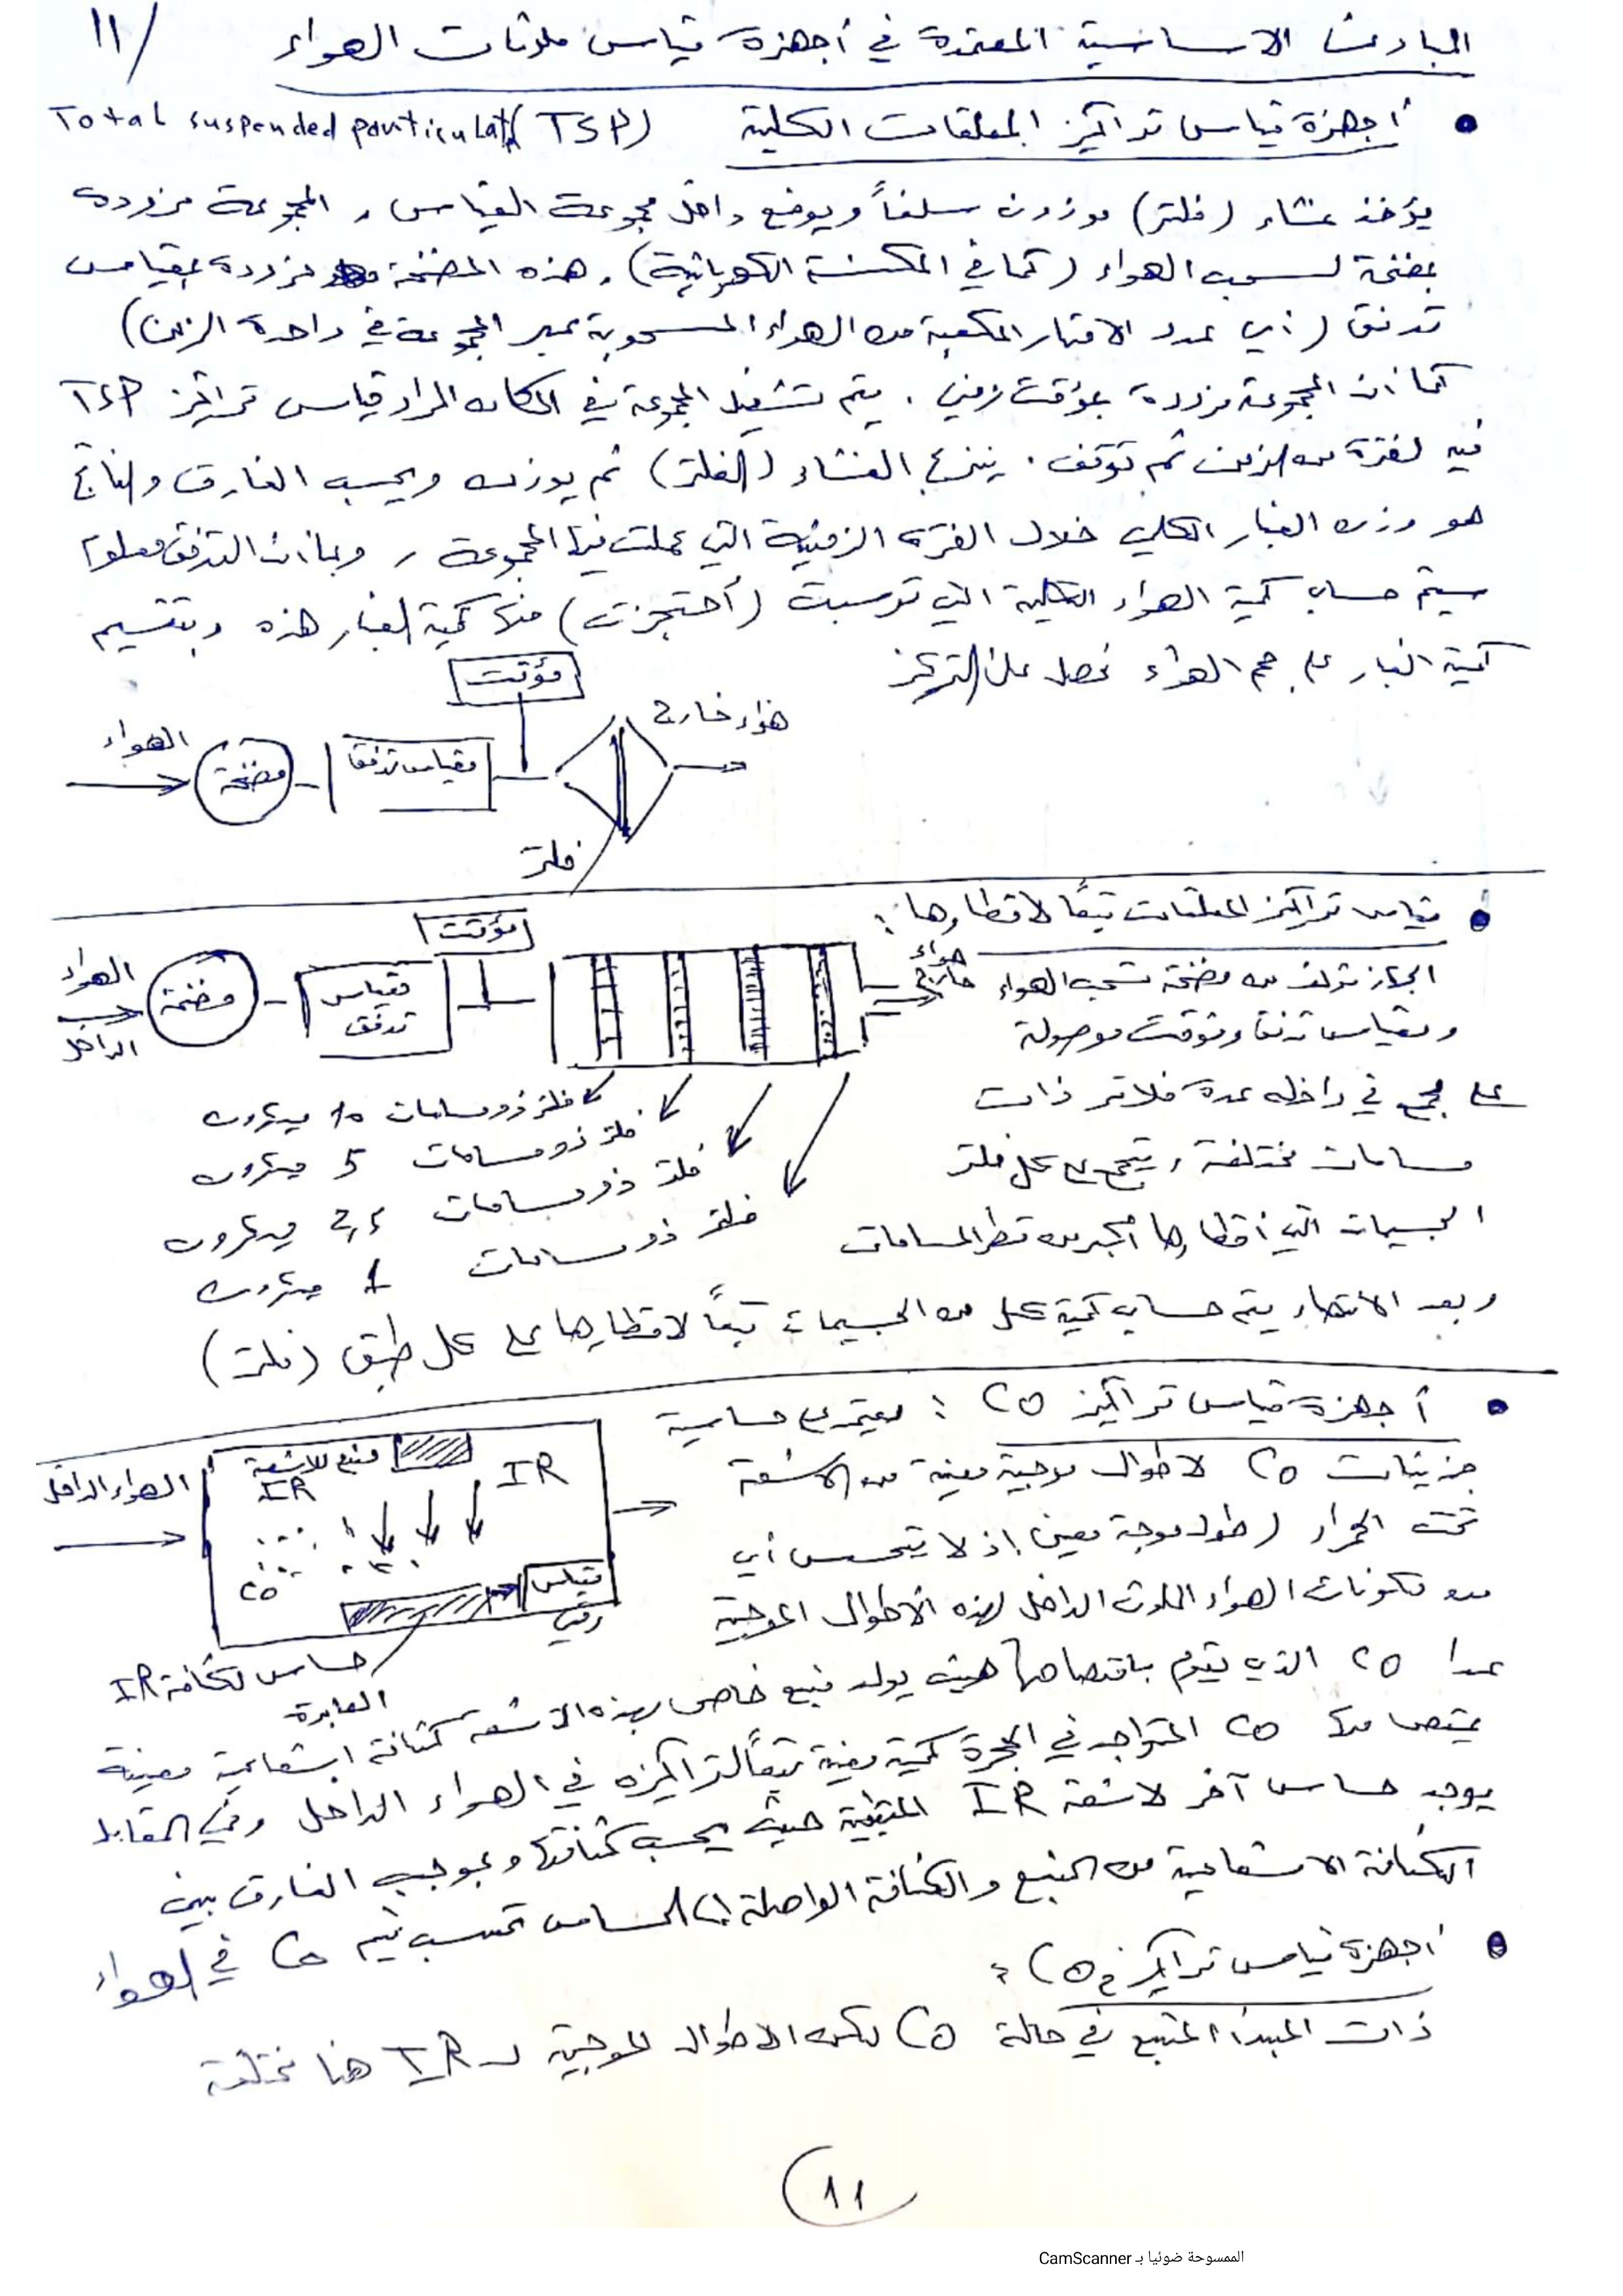 11/
المبادئ الاساسية المعتمدة في أجهزة قياس ملوثات الهواء
أجهزة قياس تراكيز المعلقات الكلية Total suspended particulat (TSP)
يؤخذ غشاء (فلتر) موزون سلفاً ويوضع داخل مجموعة القياس , المجموعة مزودة
بمضخة لسحب الهواء (كما في المكنسة الكهربائية) , هذه المضخة مزودة بمقياس
تدفق (أي عدد الامتار المكعبة من الهواء المسحوبة عبر المجموعة في واحدة الزمن)
كما ان المجموعة مزودة بمؤقت زمني . يتم تشغيل المجموعة في المكان المراد قياس تراكيز TSP
فيه لفترة من الزمن ثم توقف . ينزع الغشاء (الفلتر) ثم يوزن ويحسب الفارق والناتج
هو وزن الغبار الكلي خلال الفترة الزمنية التي عملت فيها المجموعة , وبما ان التدفق معلوم
سيتم حساب كمية الهواء الكلية التي ترسبت (أحتجزت) منها كمية الغبار هذه وبتقسيم
كمية الغبار على حجم الهواء نحصل على التركيز
مؤقت
الهواء
مضخة
مقياس تدفق
هواء خارج
فلتر
قياس تراكيز المعلقات تبعاً لاقطارها :
مؤقت
الهواء
الداخل
مضخة
مقياس
تدفق
هواء
خارج
الجهاز مؤلف من مضخة تسحب الهواء
ومقياس تدفق ومؤقت موصولة
على مجمع في داخله عدة فلاتر ذات
مسامات مختلفة , يتجمع على كل فلتر
الجسيمات التي أقطارها أكبر من قطر المسامات
فلتر ذو مسامات 10 ميكرون
فلتر ذو مسامات 5 ميكرون
فلتر ذو مسامات 2,5 ميكرون
فلتر ذو مسامات 1 ميكرون
وبعد الانتهاء يتم حساب كمية كل من الجسيمات تبعاً لاقطارها على كل طبق (فلتر)
أجهزة قياس تراكيز CO : يعتمد على حساسية
جزيئات CO لاطوال موجية معينة من الاشعة
تحت الحمراء (طول موجة معين) إذ لا يتحسس أي
من مكونات الهواء الملوث الداخل لهذه الأطوال الموجية
عدا CO الذي يقوم بامتصاصها حيث يولد منبع خاص بهذه الاشعة كثافة اشعاعية معينة
يمتص منها CO المتواجد في الحجرة كمية معينة تبعاً لتراكيزه في الهواء الداخل وفي المقابل
يوجد حساس آخر لاشعة IR المتبقية حيث يحسب كثافتها وبموجب الفارق بين
الكثافة الاشعاعية من المنبع والكثافة الواصلة الى الحساس تحسب قيم CO في الهواء
الهواء الداخل
منبع للاشعة
IR
IR
CO
مقياس
رقمي
حساس لكثافة IR
العابرة
أجهزة قياس تراكيز CO2 :
ذات المبدأ المتبع في حالة CO لكن الاطوال الموجية لـ IR هنا مختلفة
11
الممسوحة ضوئيا بـ CamScanner